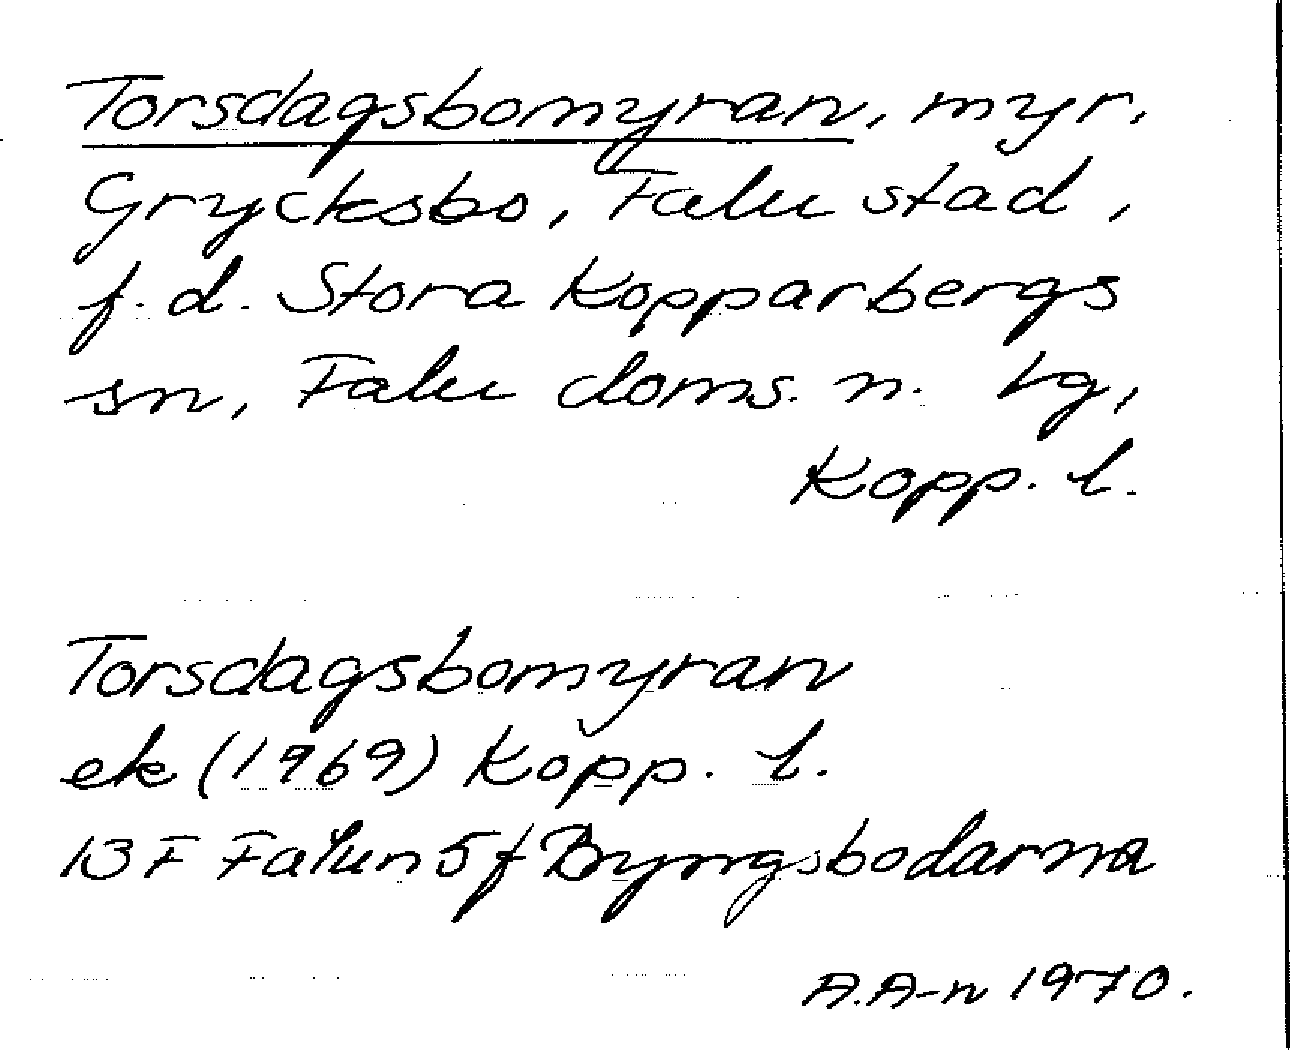 Torsdagsbomyran, myr,
Grycksbo, Falu stad,
f.d. Stora Kopparbergs
sn, Falu doms. n. tg,
Kopp. l.
Torsdagsbomyran
ek (1969) Kopp. l.
13 F Falun 5 f Bryngsbodarna
A.A-n 1970.